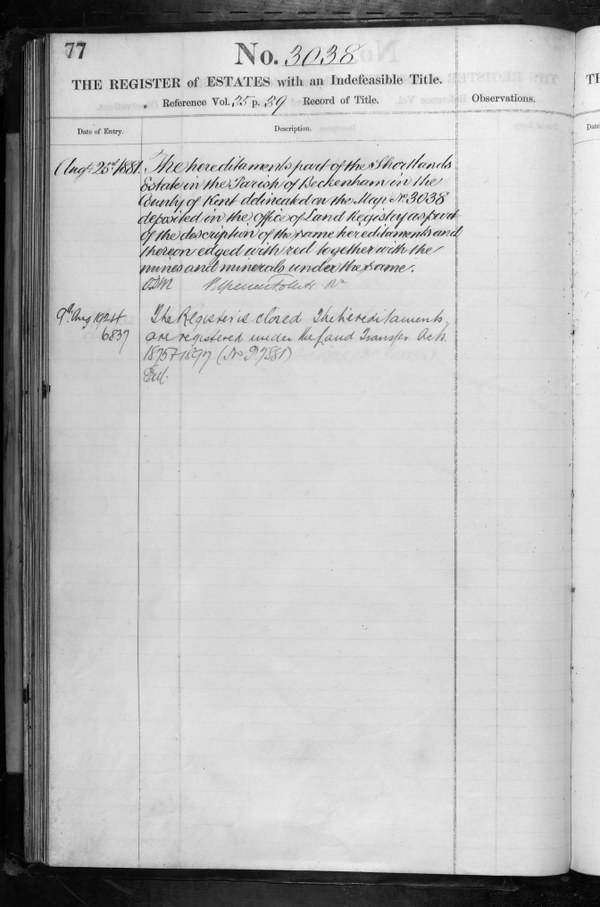 77
No. 3038
THE REGISTER of ESTATES with an Indefeasible Title.
Reference Vol. 25 p. 39 Record of Title.
Observations.
Date of Entry.
Description.
Augt 25th 1881.
The hereditaments part of the Shortlands
Estate in the Parish of Beckenham in the
County of Kent delineated on the Map No. 3038
deposited in the Office of Land Registry as part
of the description of the same hereditaments and
thereon edged with red together with the
mines and minerals under the same.
9th Aug 1924
6837
The Register is closed The hereditaments
are registered under the Land Transfer Acts
1875 & 1897 (No P7581)